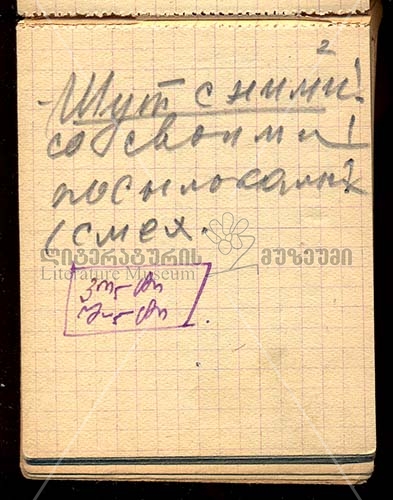 2
- Шут с ними!
со своими!
посылками!
(смех.
ლიტერატურის მუზეუმი
Literature Museum